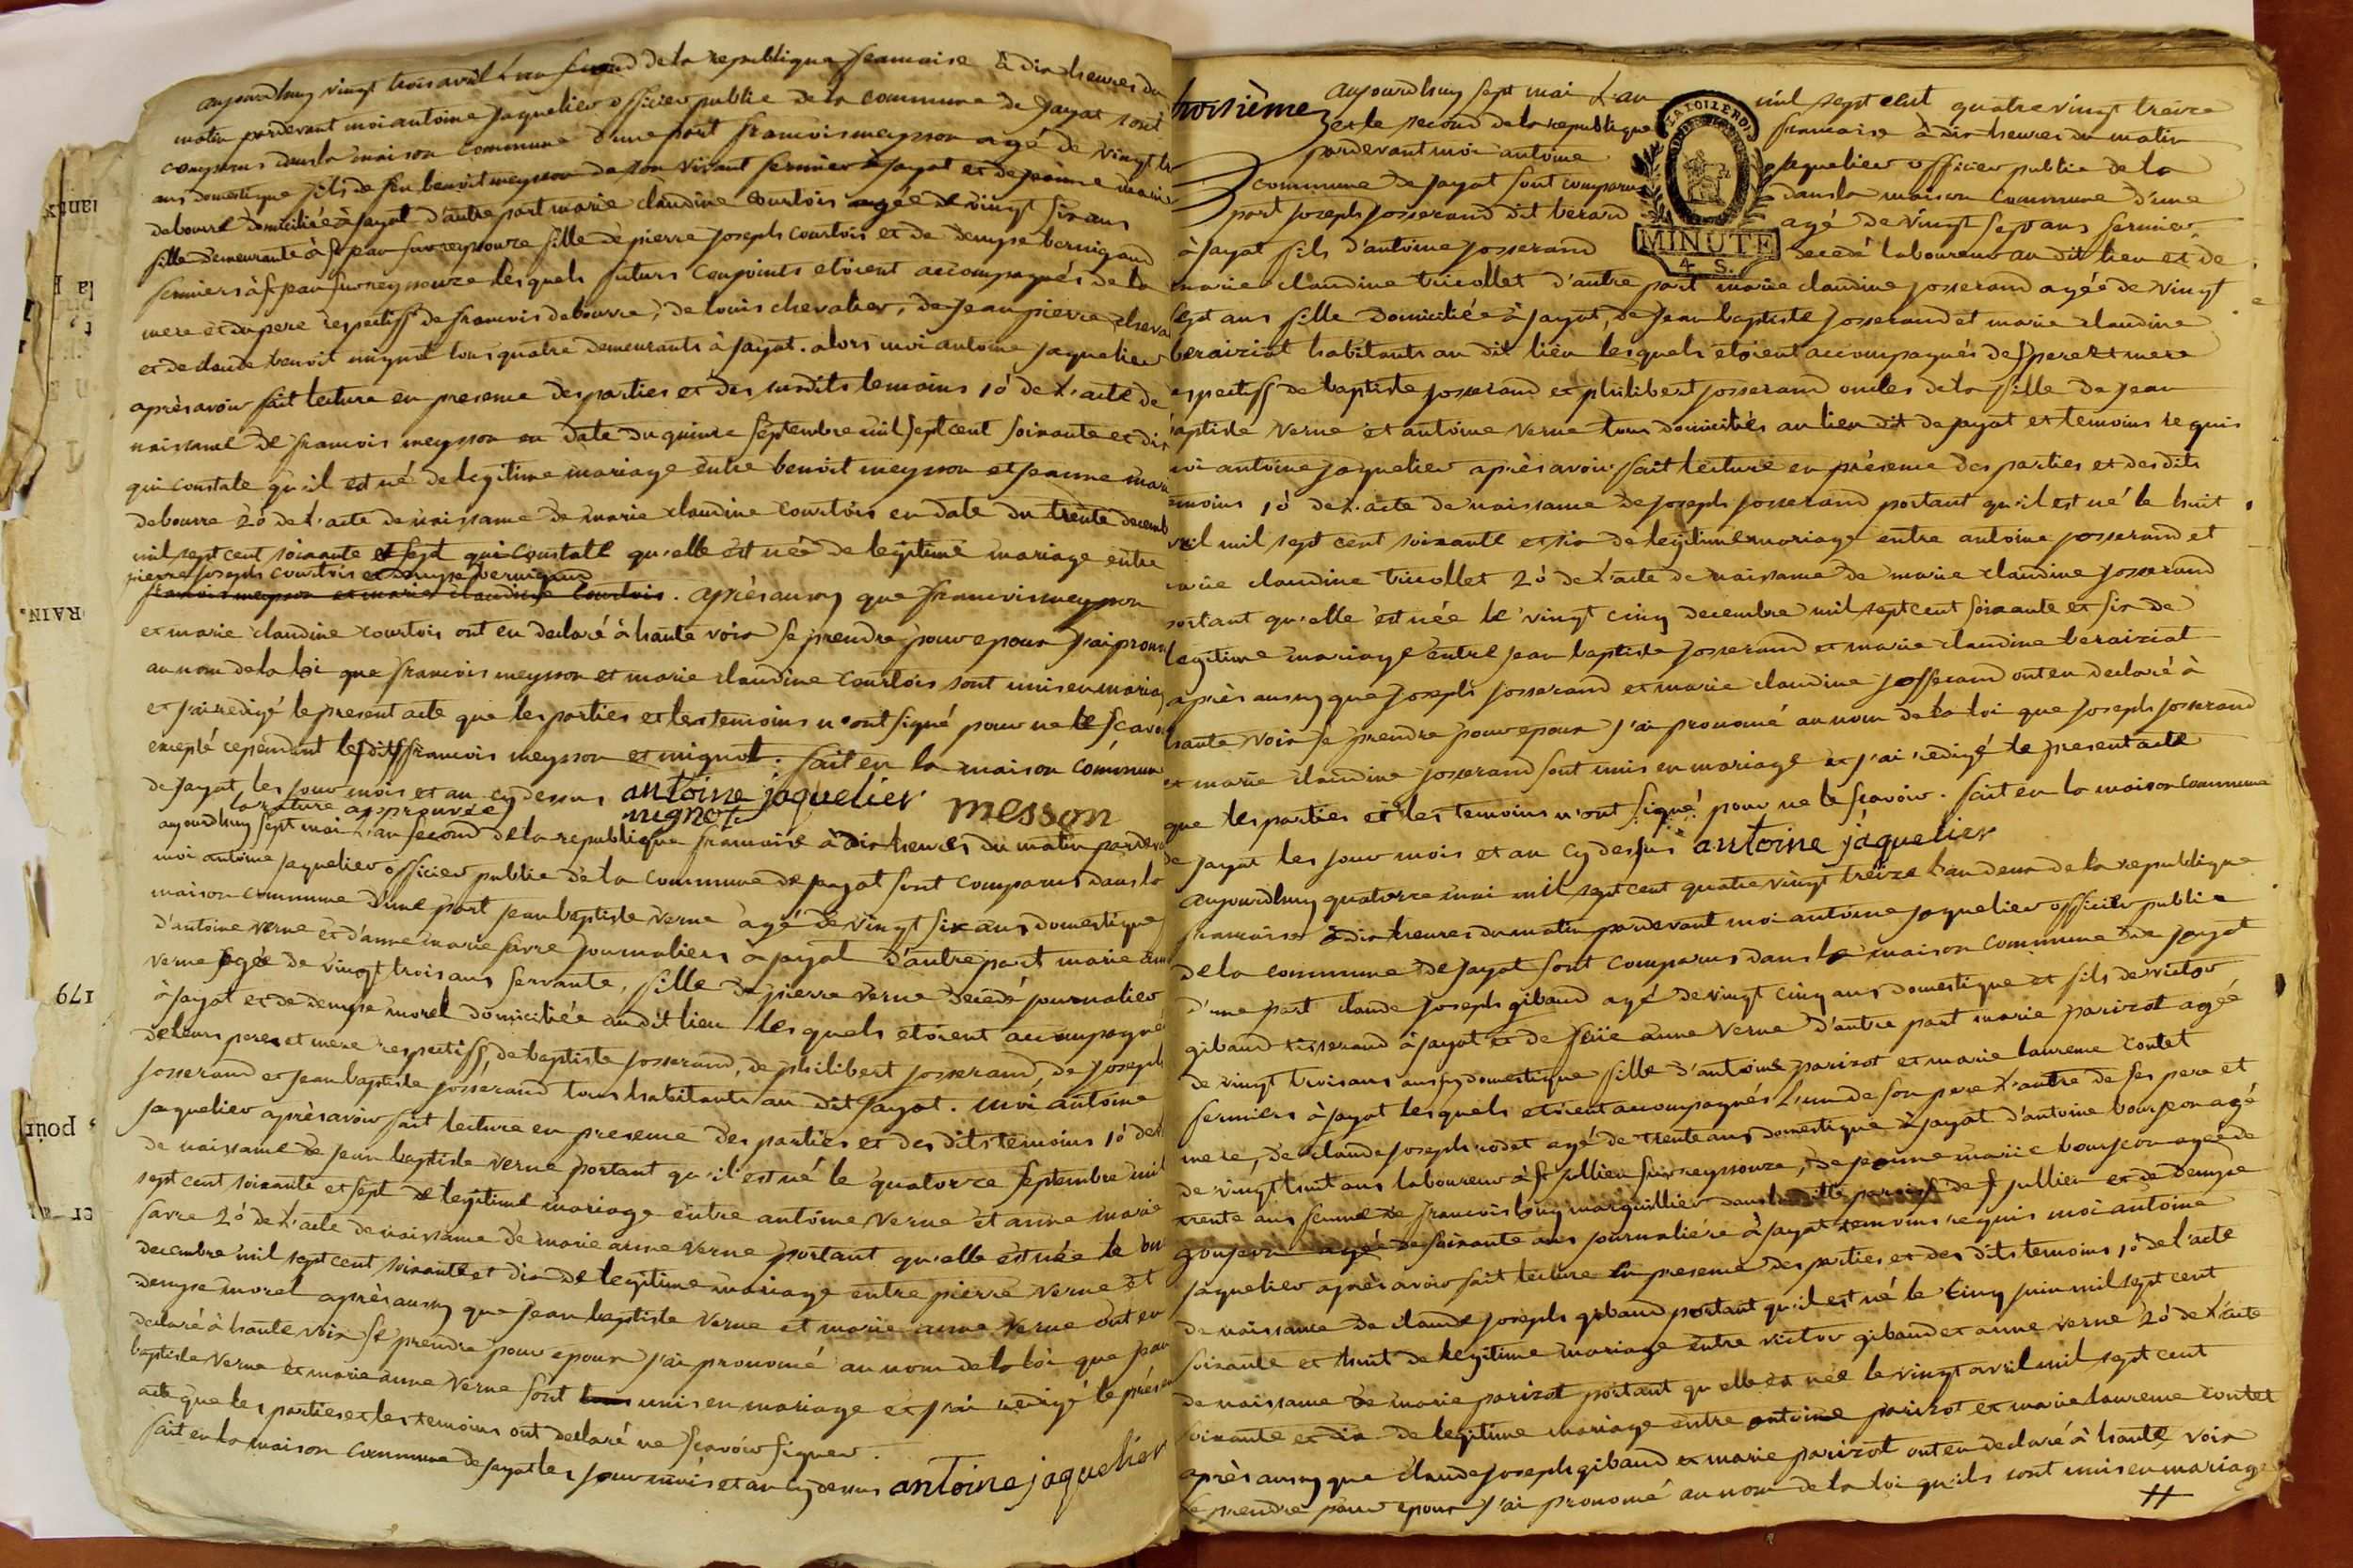 aujourdhuy vingt trois avril L'an second de la republique francaise à dix heures du
matin pardevant moi antoine jaquelier officier public de la commune de Jayat sont
comparus dans la maison commune d'une part francois meysson agé de vingt
ans domestique fils de feu benoit meysson de son vivant fermier à Jayat et de jeanne marie
debourre domicilié à Jayat d'autre part marie claudine courtois agée de vingt six ans
fille demeurante à st jean sur reyssouze fille de pierre joseph courtois et de denyse bernigaud
fermiers à st jean sur reyssouze lesquels futurs conjoints etoient accompagnés de la
mere et du pere respectifs de francois debourre, de louis chevalier, de jean pierre cheva
et de claude benoit mignot tous quatre demeurants à Jayat. alors moi antoine jaquelier
après avoir fait lecture en presence des parties et des susdits temoins 1° de L'acte de
naissance de francois meysson en date du quinze septembre mil sept cent soixante et dix
qui constate qu'il est né de legitime mariage entre benoit meysson et jeanne marie
debourre 2° de L'acte de naissance de marie claudine courtois en date du trente decemb
mil sept cent soixante et sept qui constate qu'elle est née de legitime mariage entre
pierre joseph courtois et denyse bernigaud
francois meysson et marie claudine courtois. après aussy que francois meysson
et marie claudine courtois ont eu declaré à haute voix se prendre pour epoux j'ai pronon
au nom de la loi que francois meysson et marie claudine courtois sont unis en mariag
et j'ai redigé le present acte que les parties et les temoins n'ont signé pour ne le scavoir
excepté cependant lesdits francois meysson et mignot. fait en la maison commune
de Jayat les jour mois et an cy dessus antoine jaquelier messon
la rature approuvée mignot
aujourdhuy sept mai L'an second de la republique francaise à dix heures du matin pardeva
moi antoine jaquelier officier public de la commune de Jayat sont comparus dans la
maison commune d'une part jean baptiste verne agé de vingt six ans domestique
d'antoine verne et d'anne marie favre journaliers à Jayat d'autre part marie anne
verne agée de vingt trois ans servante, fille de pierre verne decedé journalier
à Jayat et de denyse morel domiciliée au dit lieu lesquels etoient accompagné
de leurs peres et mere respectifs, de baptiste josserand, de philibert josserand, de joseph
josserand et jean baptiste josserand tous habitants au dit Jayat. moi antoine
jaquelier après avoir fait lecture en presence des parties et des dits temoins 1° de
de naissance de jean baptiste verne portant qu'il est né le quatorze septembre mil
sept cent soixante et sept de legitime mariage entre antoine verne et anne marie
favre 2° de L'acte de naissance de marie anne verne portant qu'elle est née le
decembre mil sept cent soixante et dix de legitime mariage entre pierre verne et
denyse morel après aussy que jean baptiste verne et marie anne verne ont eu
declaré à haute voix se prendre pour epoux j'ai prononcé au nom de la loi que jean
baptiste verne et marie anne verne sont unis en mariage et j'ai redigé le présent
acte que les parties et les temoins ont declaré ne scavoir signer.
fait en la maison commune de Jayat les jour mois et an cy dessus antoine jaquelier
troisième
aujourdhuy sept mai L'an mil sept cent quatre vingt treize
et le second de la republique francaise à dix heures du matin
pardevant moi antoine jaquelier officier public de la
commune de Jayat sont comparus dans la maison commune d'une
part joseph josserand dit berard agé de vingt sept ans fermier
à Jayat fils d'antoine josserand decedé laboureur au dit lieu et de
MINUTE
4 S.
marie claudine tricollet d'autre part marie claudine josserand agée de vingt
sept ans fille domiciliée à Jayat, de jean baptiste josserand et marie claudine
beraiziat habitants au dit lieu lesquels etoient accompagnés des peres et mere
respectifs de baptiste josserand et philibert josserand oncles de la fille de jean
baptiste verne et antoine verne tous domiciliés au lieu dit de Jayat et temoins requis
moi antoine jaquelier après avoir fait lecture en présence des parties et des dits
temoins 1° de L'acte de naissance de joseph josserand portant qu'il est né le huit
avril mil sept cent soixante et six de legitime mariage entre antoine josserand et
marie claudine tricollet 2° de L'acte de naissance de marie claudine josserand
portant qu'elle est née le vingt cinq decembre mil sept cent soixante et six de
legitime mariage entre jean baptiste josserand et marie claudine beraiziat
après aussy que joseph josserand et marie claudine josserand ont eu declaré à
haute voix se prendre pour epoux j'ai prononcé au nom de la loi que joseph josserand
et marie claudine josserand sont unis en mariage et j'ai redigé le present acte
que les parties et les temoins n'ont signé pour ne le scavoir. fait en la maison commune
de Jayat les jour mois et an cy dessus antoine jaquelier
aujourdhuy quatorze mai mil sept cent quatre vingt treize L'an deux de la republique
francaise à dix heures du matin pardevant moi antoine jaquelier officier public
de la commune de Jayat sont comparus dans la maison commune de Jayat
d'une part claude joseph gibaud agé de vingt cinq ans domestique et fils de victor
gibaud tisserand à Jayat et de feüe anne verne d'autre part marie parizot agée
de vingt trois ans aussy domestique fille d'antoine parizot et marie laurence contet
fermiers à Jayat lesquels etoient accompagnés L'un de son pere L'autre de ses pere et
mere, de claude joseph rodet agé de trente ans domestique à Jayat d'antoine bourjeon agé
de vingt huit ans laboureur à st jullien sur reyssouze, de jeanne marie bourjeon agée de
trente ans femme de francois buy marguillier dans la ditte paroisse de st jullien et de denyse
goujeon agée de soixante ans journaliere à Jayat temoins requis moi antoine
jaquelier après avoir fait lecture en presence des parties et des dits temoins 1° de l'acte
de naissance de claude joseph gibaud portant qu'il est né le cinq juin mil sept cent
soixante et huit de legitime mariage entre victor gibaud et anne verne 2° de L'acte
de naissance de marie parizot portant qu'elle est née le vingt avril mil sept cent
soixante et dix de legitime mariage entre antoine parizot et marie laurence contet
après aussy que claude joseph gibaud et marie parizot ont eu declaré à haute voix
se prendre pour epoux j'ai prononcé au nom de la loi qu'ils sont unis en mariage
RAIN.
179
pour